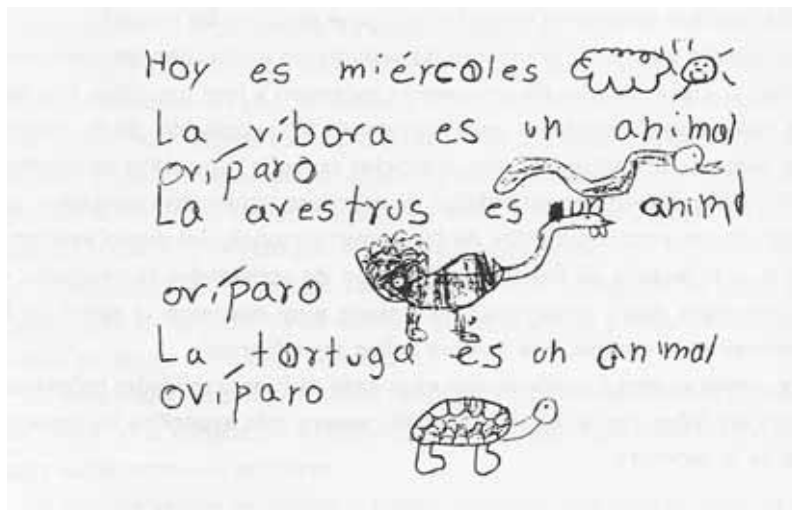 Hoy es miércoles
La víbora es un animal
oviparo
La avestrus es un animl
ovíparo
La tortuga es un animal
ovíparo